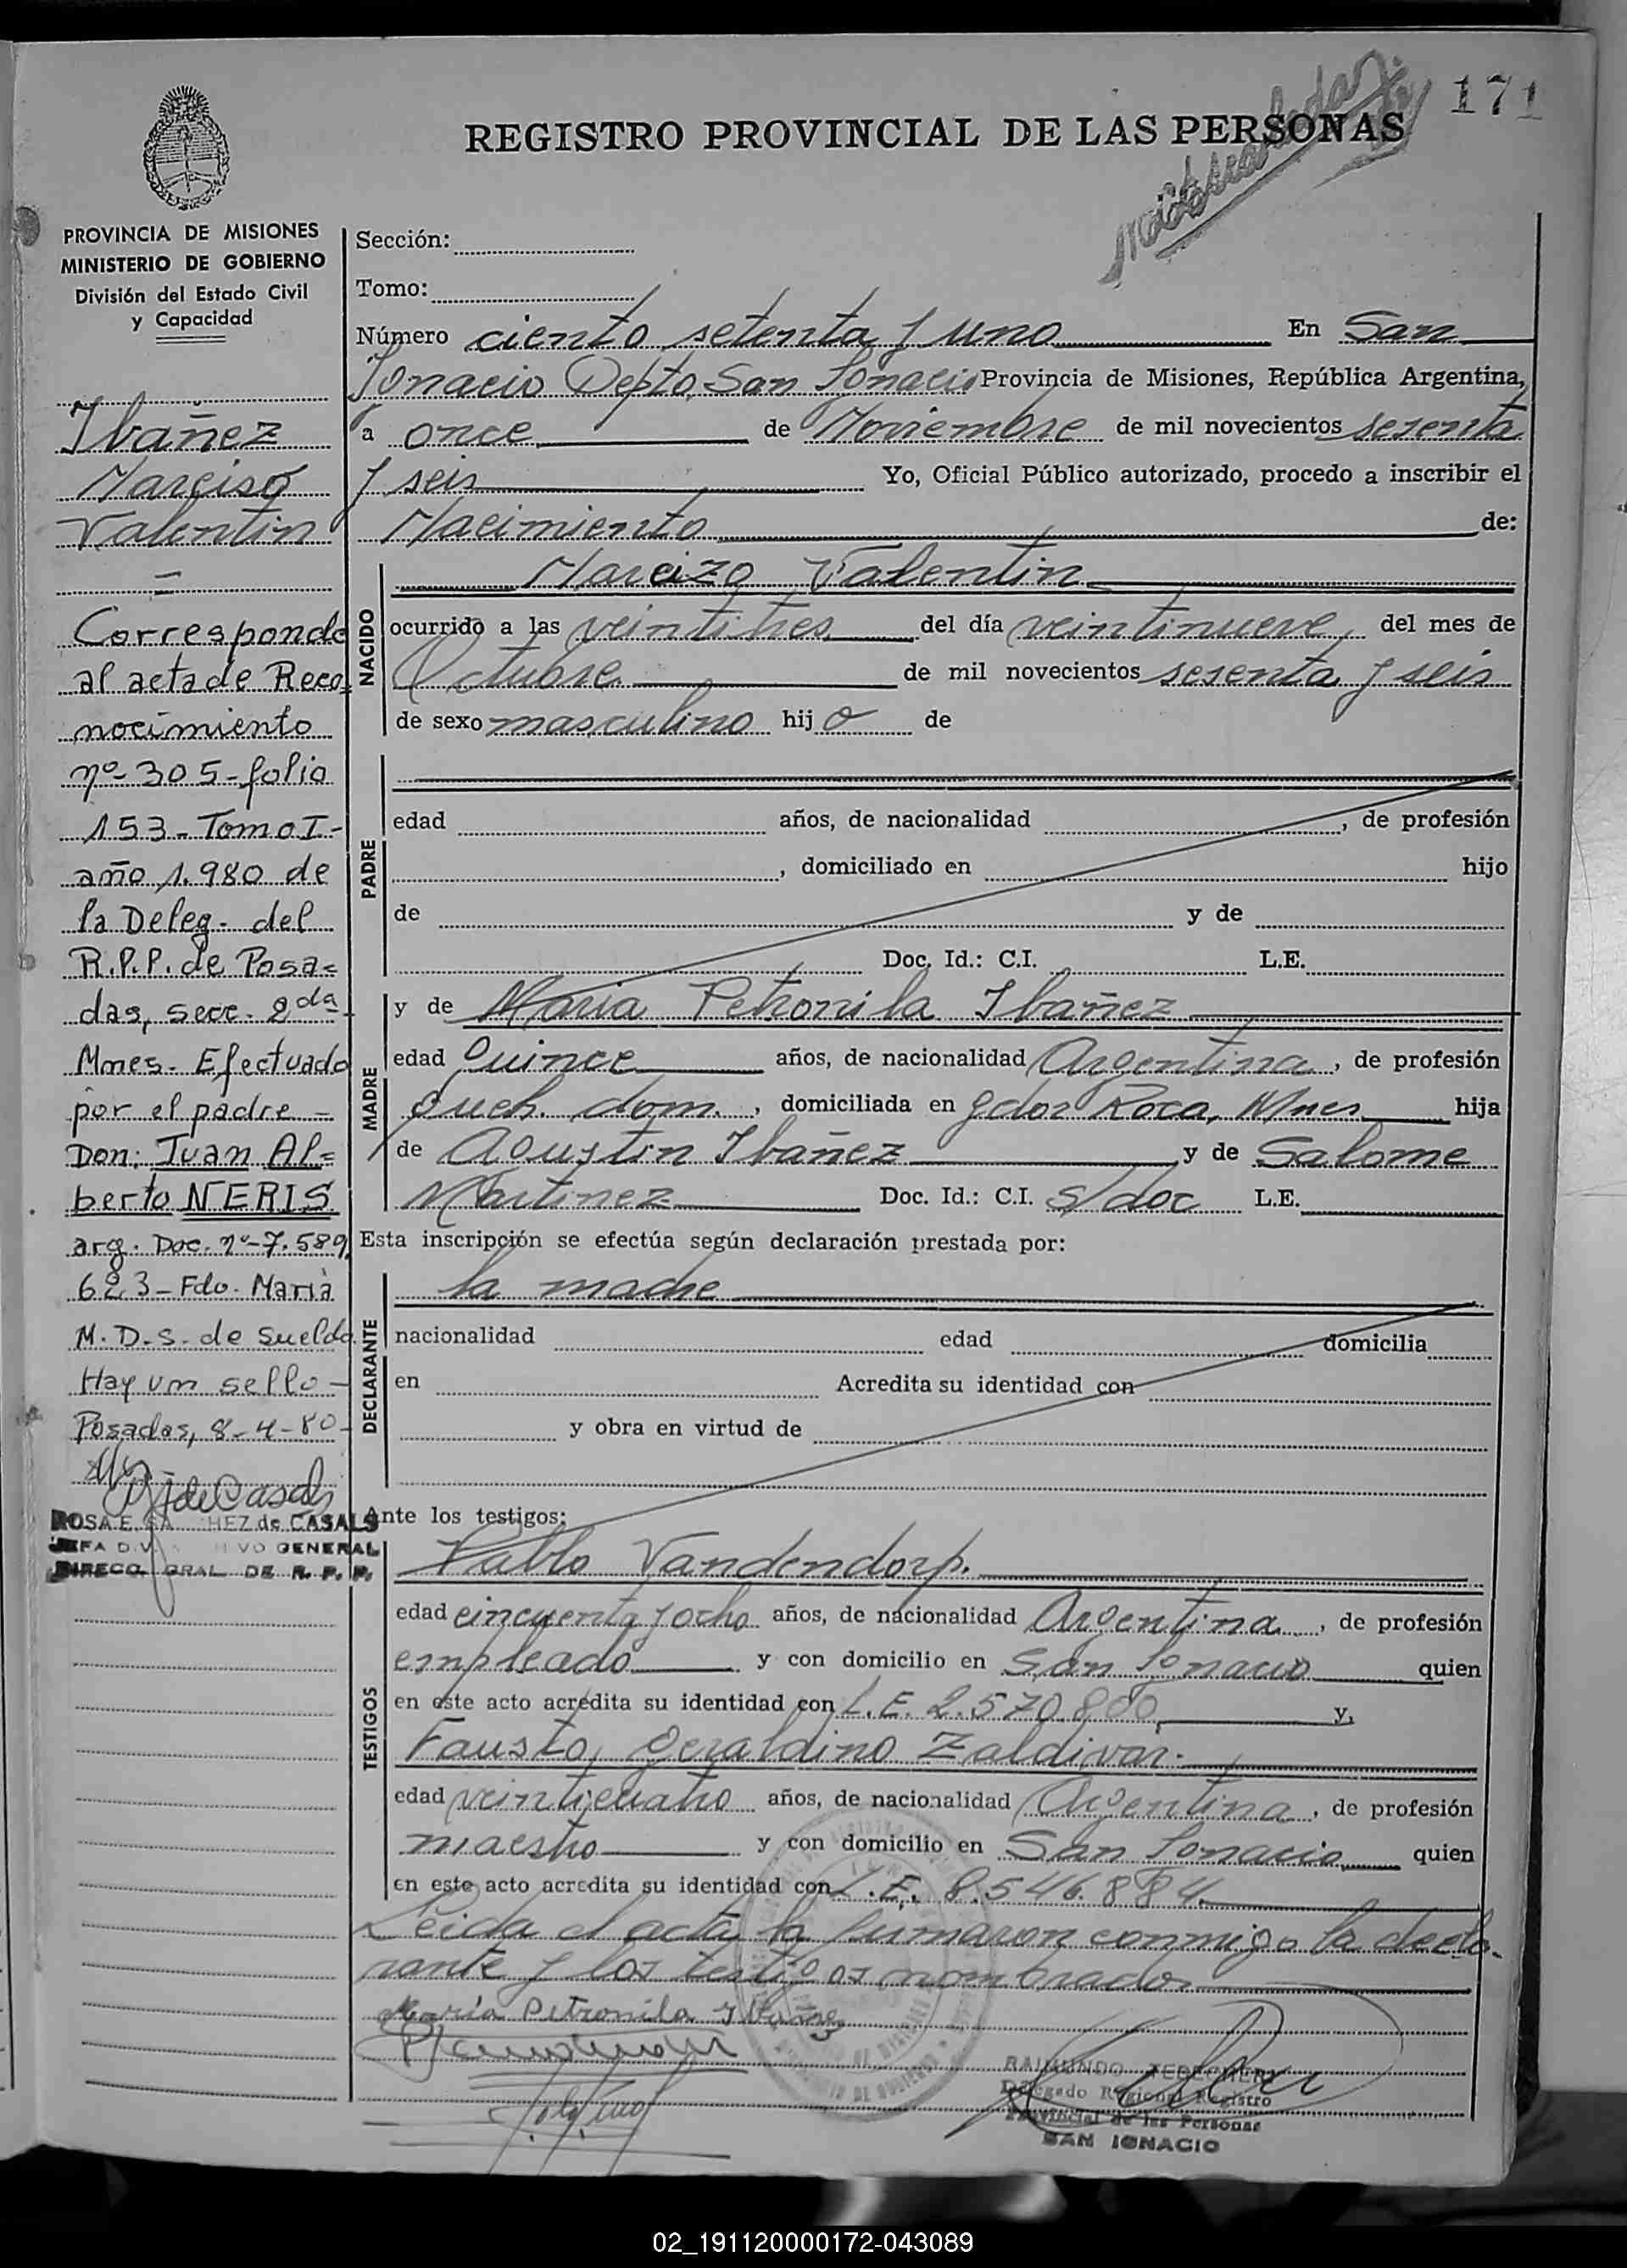 171
REGISTRO PROVINCIAL DE LAS PERSONAS
PROVINCIA DE MISIONES
MINISTERIO DE GOBIERNO
División del Estado Civil
y Capacidad
Ibañez
Narciso
Valentin
Corresponde
al acta de Reco-
nocimiento
nº-305-folio
153-Tomo I-
año 1.980 de
la Deleg. del
R.P.P. de Posa=
das, secc. 2da
Mnes. Efectuado
por el padre -
Don: Juan Al=
berto NERIS
arg. Doc. nº-7.589,
623-Fdo. Maria
M.D.S. de Sueldo
Hay un sello-
Posadas, 8-4-80-
ROSA E. HEZ de CASALS
JEFA DIV VO GENERAL
DIRECC. GRAL DE R. P. P.
Sección:
Tomo:
Número ciento setenta y uno En San
Ignacio Depto. San Ignacio Provincia de Misiones, República Argentina,
a once de Noviembre de mil novecientos sesenta
y seis Yo, Oficial Público autorizado, procedo a inscribir el
Nacimiento de:
NACIDO
Narcizo Valentin
ocurrido a las veintitres del día veintinueve, del mes de
Octubre de mil novecientos sesenta y seis
de sexo masculino hijo de
PADRE
edad años, de nacionalidad , de profesión
, domiciliado en hijo
de y de
Doc. Id.: C.I. L.E.
MADRE
y de Maria Petronila Ibañez
edad Quince años, de nacionalidad Argentina, de profesión
Queh. dom., domiciliada en Gdor Roca, Mnes hija
de Agustin Ibañez y de Salome
Martinez Doc. Id.: C.I. s/doc L.E.
Esta inscripción se efectúa según declaración prestada por:
DECLARANTE
la madre
nacionalidad edad domicilia
en Acredita su identidad con
y obra en virtud de
Ante los testigos:
TESTIGOS
Pablo Vandendorp.
edad cincuenta y ocho años, de nacionalidad Argentina, de profesión
empleado y con domicilio en San Ignacio quien
en este acto acredita su identidad con L.E. 2.570.800 y,
Fausto Geraldino Zaldivar.
edad veinticuatro años, de nacionalidad Argentina, de profesión
maestro y con domicilio en San Ignacio quien
en este acto acredita su identidad con L.E. 8.546.884
Leida el acta la firmaron conmigo la decla-
rante y los testigos nombrados
Maria Petronila Ibañez
RAIMUNDO
Delegado Regional Registro
Provincial de las Personas
SAN IGNACIO
02_191120000172-043089